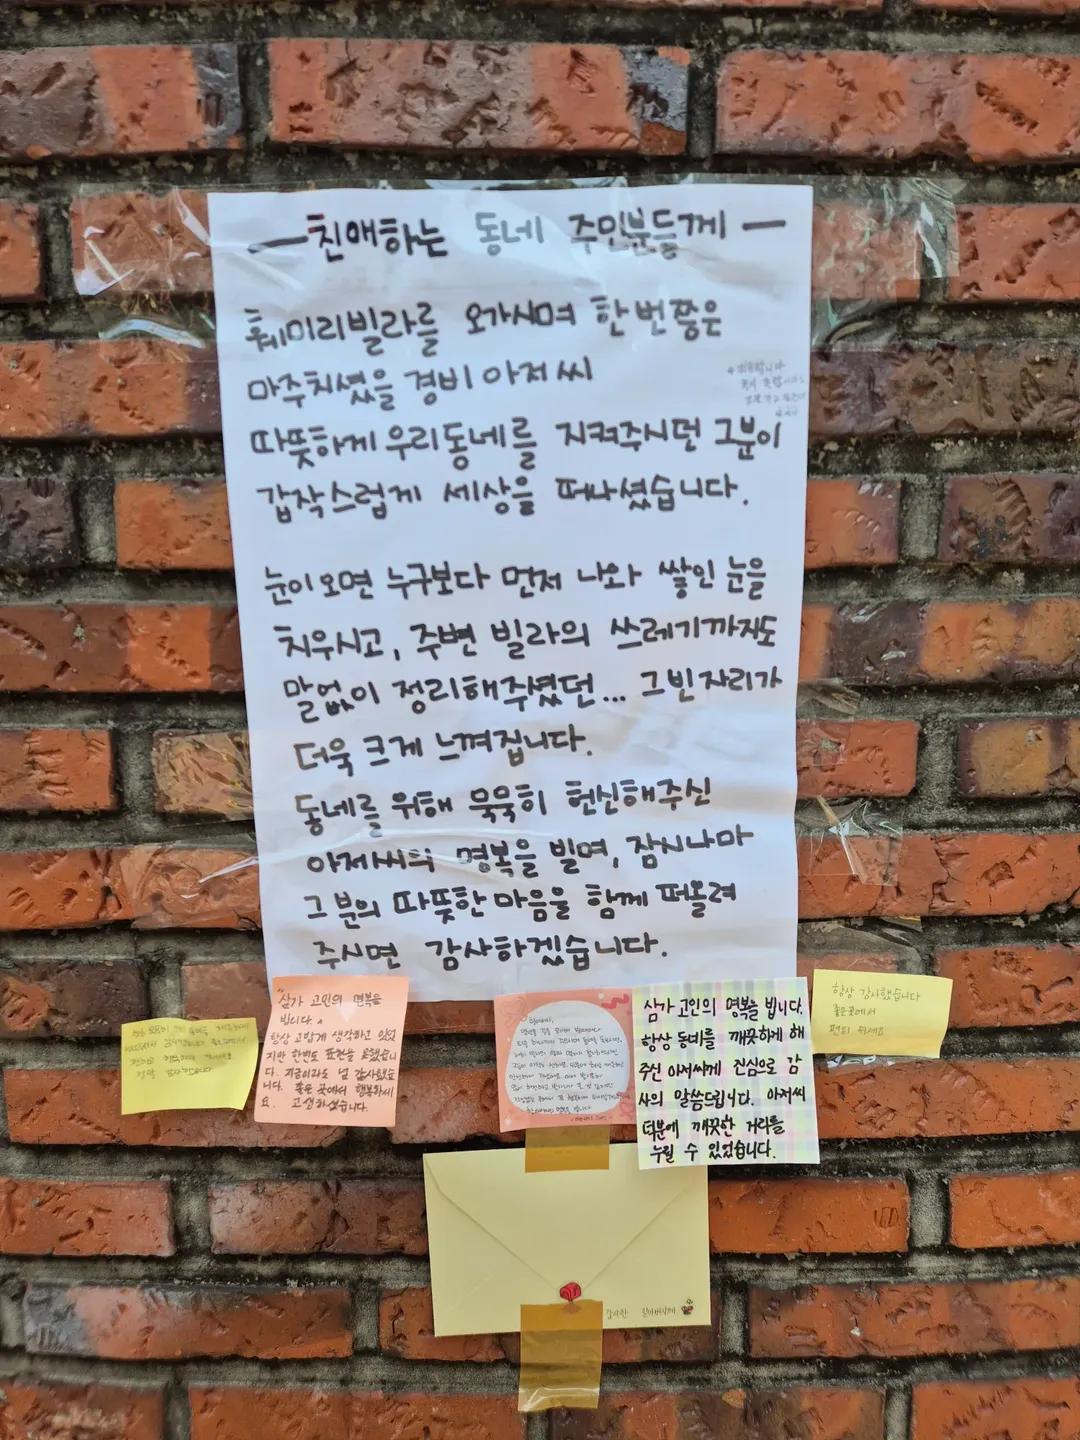 친애하는 동네 주민분들께
훼미리빌라를 오가시며 한번쯤은
마주치셨을 경비 아저씨
따뜻하게 우리동네를 지켜주시던 그분이
갑작스럽게 세상을 떠나셨습니다.
눈이 오면 누구보다 먼저 나와 쌓인 눈을
치우시고, 주변 빌라의 쓰레기까지도
말없이 정리해주셨던... 그 빈자리가
더욱 크게 느껴집니다.
동네를 위해 묵묵히 헌신해주신
아저씨의 명복을 빌며, 잠시나마
그분의 따뜻한 마음을 함께 떠올려
주시면 감사하겠습니다.
"삼가 고인의 명복을
빕니다."
항상 고맙게 생각하고 있었
지만 한번도 표현을 못했습니
다. 지금이라도 넘 감사했습
니다. 좋은 곳에서 행복하세
요. 고생하셨습니다.
삼가 고인의 명복을 빕니다.
항상 동네를 깨끗하게 해
주신 아저씨께 진심으로 감
사의 말씀드립니다. 아저씨
덕분에 깨끗한 거리를
누릴 수 있었습니다.
항상 감사했습니다
좋은곳에서
편히 쉬세요